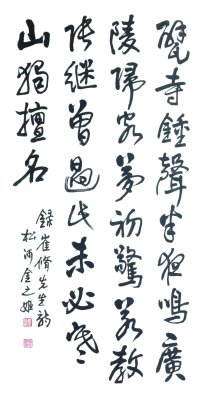 甓寺鍾聲半夜鳴廣
陵歸客夢初驚若教
張繼曾過此未必寒
山獨擅名
錄崔脩先生詩
松河金之姬